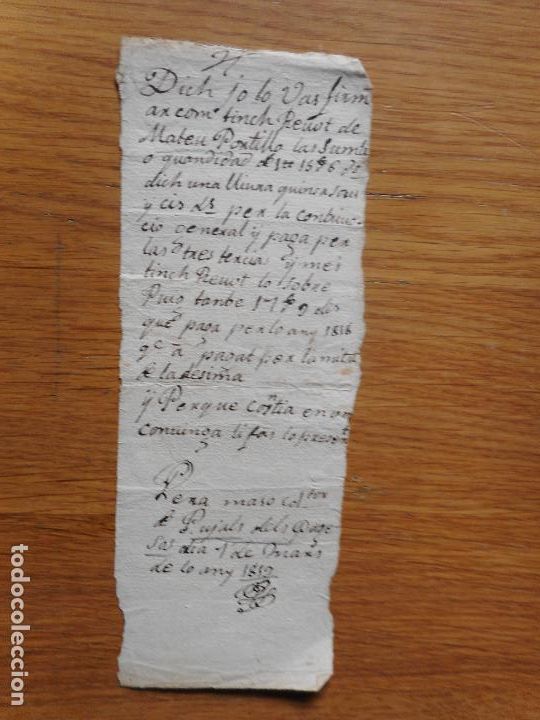 Dich jo lo Vas firm
ar com tinch Revot de
Mateu Portillo las Suma
o quandidad de 1 15 6
dich una lliura quinse sous
y sis per la contribuc
cio general y paga per
las tres tercias y mes
tinch Revot lo sobre
tanbe 17 9 des
que paga per lo any 1818
qe a pagat per la mitat
de la desima
y Perque en on
convinga li fas lo present
Pera maso
de Pujals dels Page
sos dia 1 de Mars
de lo any 1819
todocoleccion.net